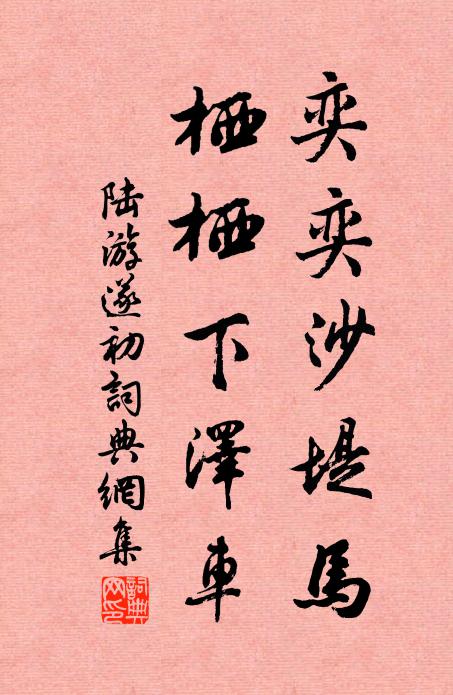 奕奕沙堤馬
栖栖下澤車
陸游遂初詞典網集
詞典
网印